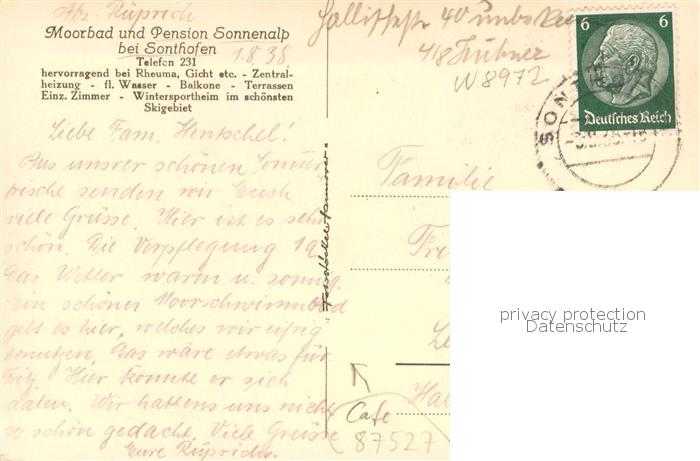 Abs. Rüprich
Moorbad und Pension Sonnenalp
bei Sonthofen
1.8.38.
Telefon 231
hervorragend bei Rheuma, Gicht etc. - Zentral-
heizung - fl. Wasser - Balkone - Terrassen
Einz. Zimmer - Wintersportheim im schönsten
Skigebiet
Liebe Fam. Hentschel!
Aus unsrer schönen Sommer
frische senden wir Euch
viele Grüsse. Hier ist es sehr
schön. Die Verpflegung 1a.
Das Wetter warm u. sonnig.
Ein schönes Moorschwimmbad
gibt es hier, welches wir eifrig
benutzen. Das wäre etwas für
Fritz. Hier könnte er sich
aalen. Wir hattens uns nicht
so schön gedacht. Viele Grüsse
Eure Rüprichs.
40
418 Hübner
W 8972
6 6
Deutsches Reich
SONT
Familie
Fr
Le
Hal
Cafe
87527
privacy protection
Datenschutz